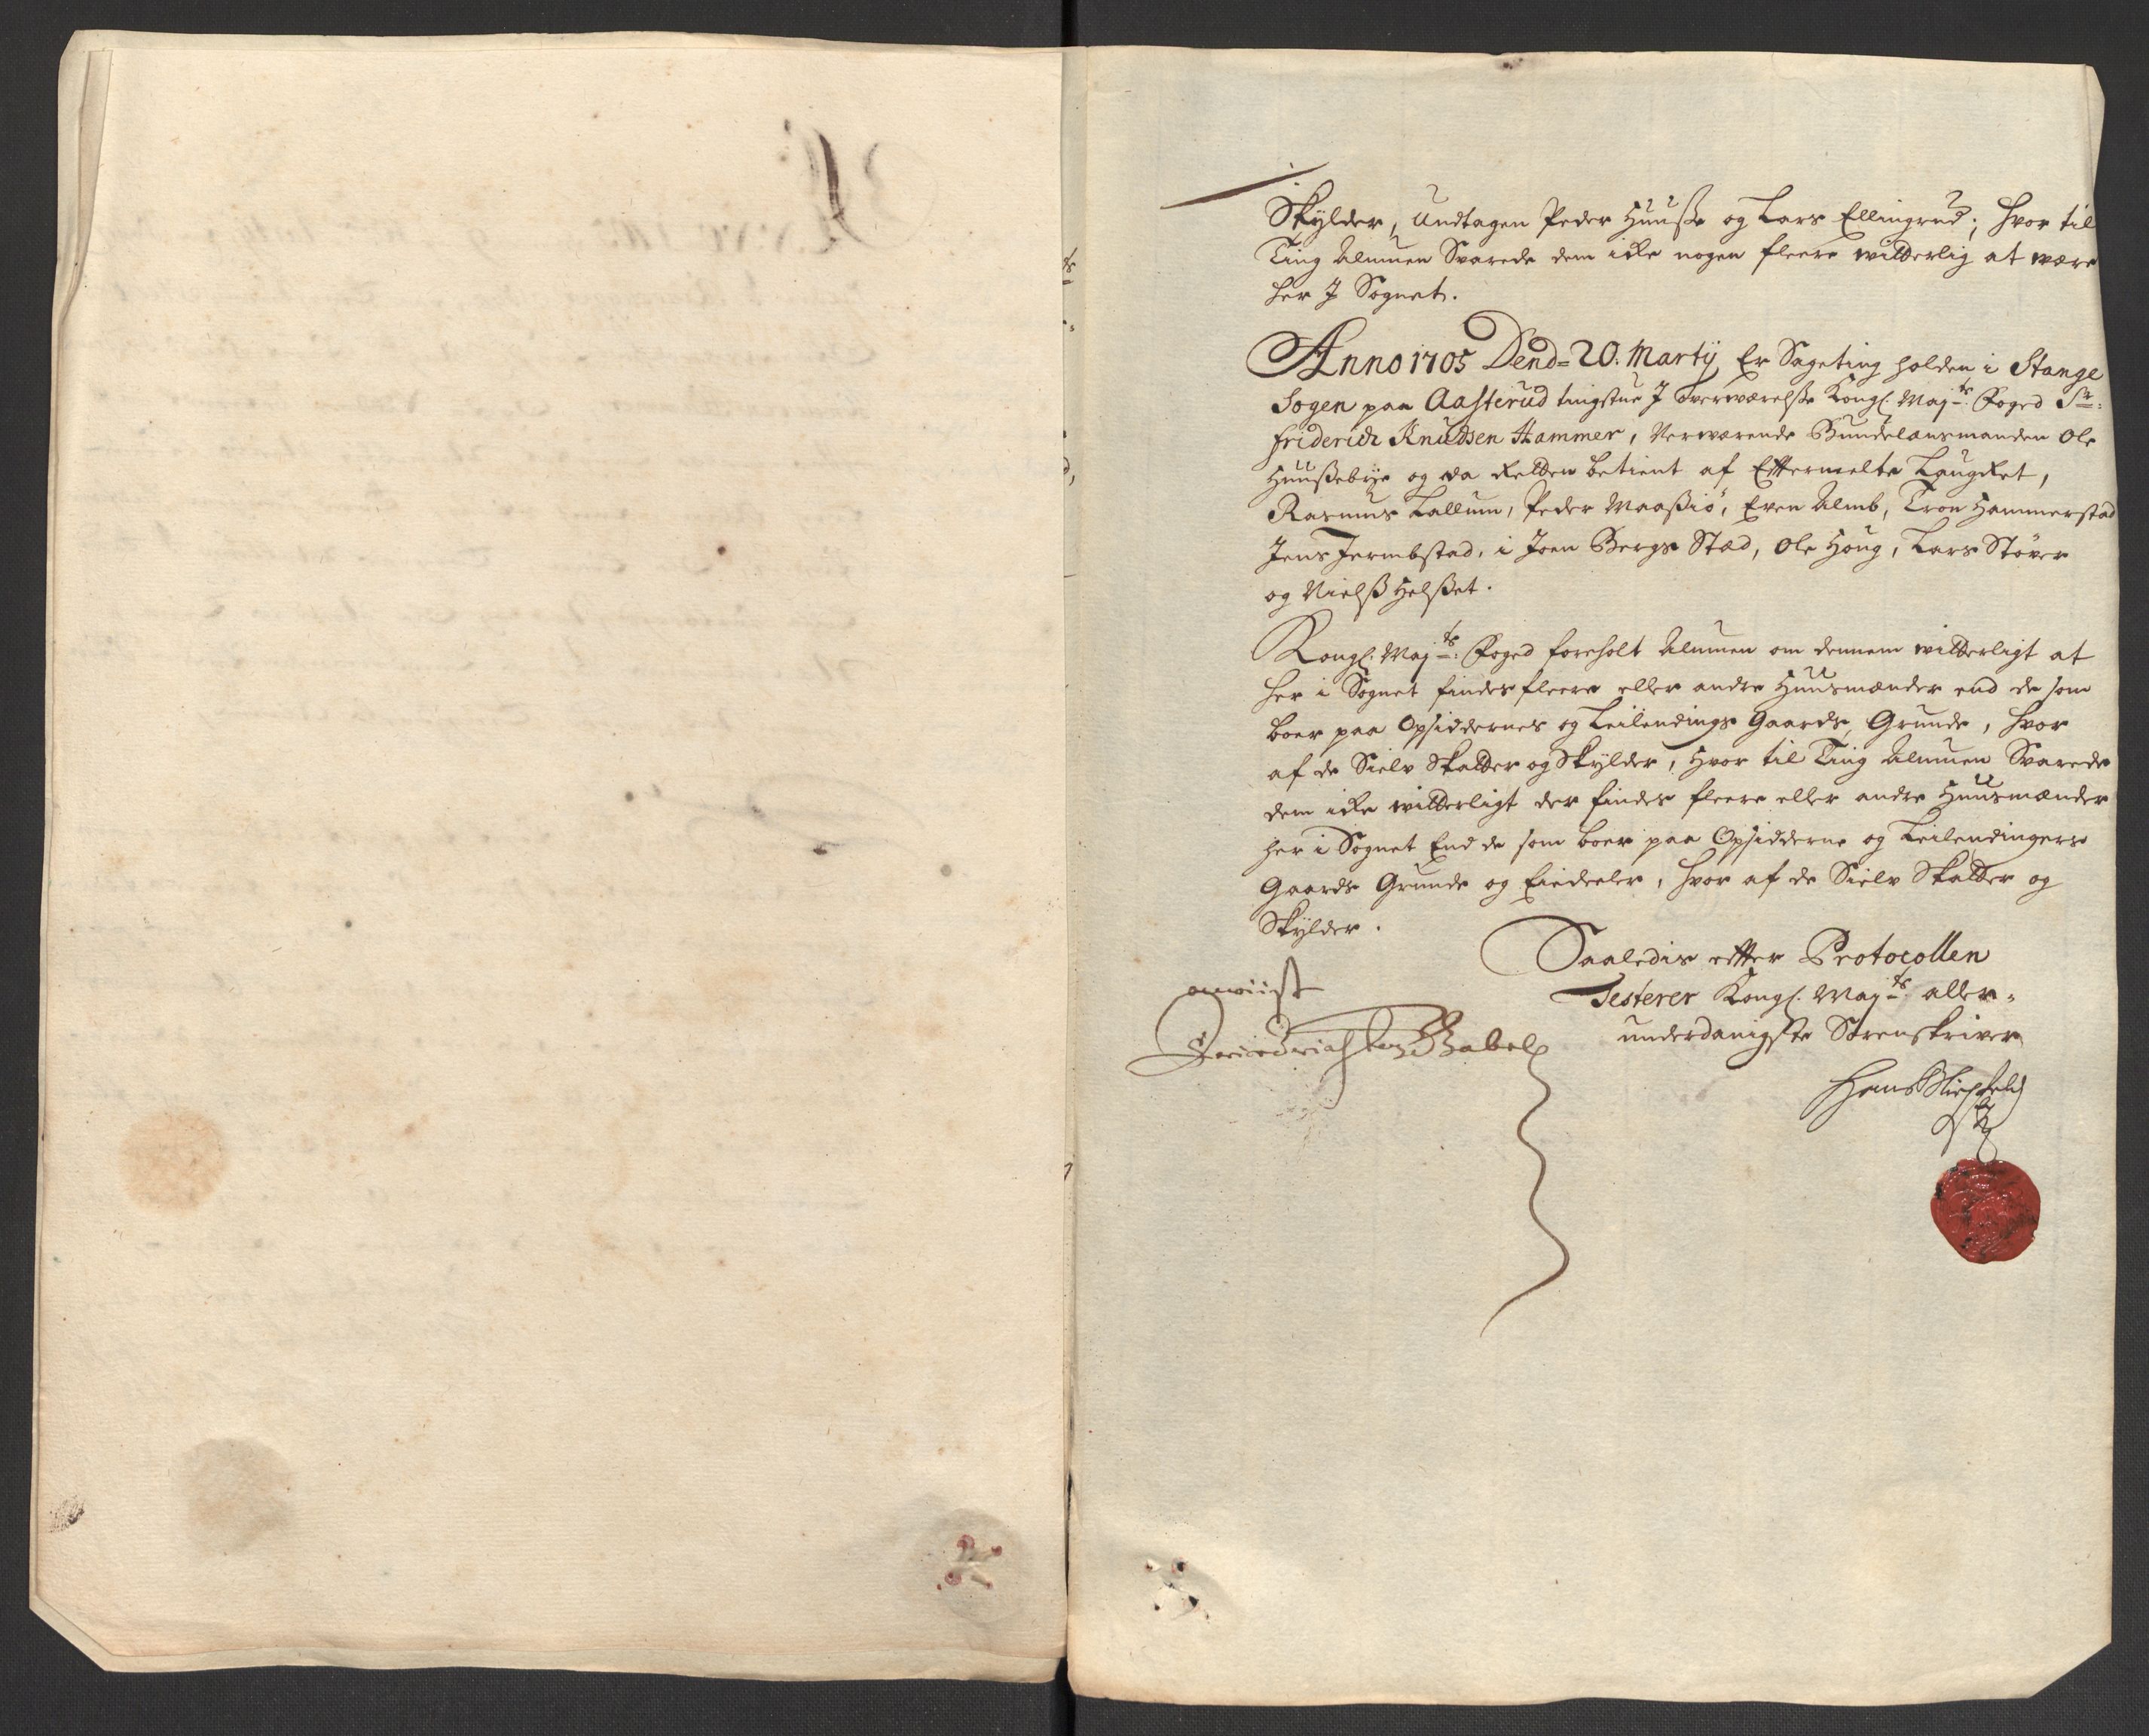 Skylder, Undtagen Peder Huusse og Lars Ellingrud; hvor til
Ting Almuen Svarede dem icke nogen fleere witterlig at være
her J Sognet.
Anno 1705 Dend= 20. Martij Er Sageting holden i Stange
Sogen paa Aasterud tingstue J Overværelsse Kongl. Maj:ts Foged Sr:
Friderich Knudsen Hammer, Nerværende Bundelensmanden Ole
Huussebye og da Retten betient af Effermelte Laugret,
Rasmus Lallum, Peder Maassiö, Even Almb, Tron Hammerstad
Jens Jermbstad, i Joen Bergs Stæd, Ole Houg, Lars Stöver
og Nielss Helsset.
Kongl. Maj:ts Foged foreholt Almuen om dennem witterligt at
her i Sognet findes fleere eller andre Huusmænder end de som
boer paa Opsiddernes og Leilendings Gaards, Grunde, hvor
af de Sielv Skatter og Skylder, Hvor til Ting Almuen Svarede
dem icke witterligt der findes fleere eller andre Huusmænder
her i Sognet End de som boer paa Opsidderne og Leilendingers
Gaards Grunde og Eiedeeler, hvor af de Sielv Skatter og
Skylder.
Saaledis effter Protocollen
Testerer Kongl. Maj:ts aller-
underdanigste Sorenskriver